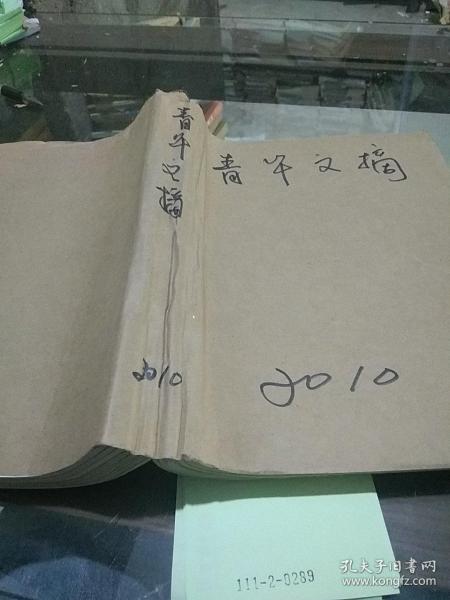 青年文摘
2010
青年文摘
2010
111-2-0289
孔夫子旧书网
www.kongfz.com